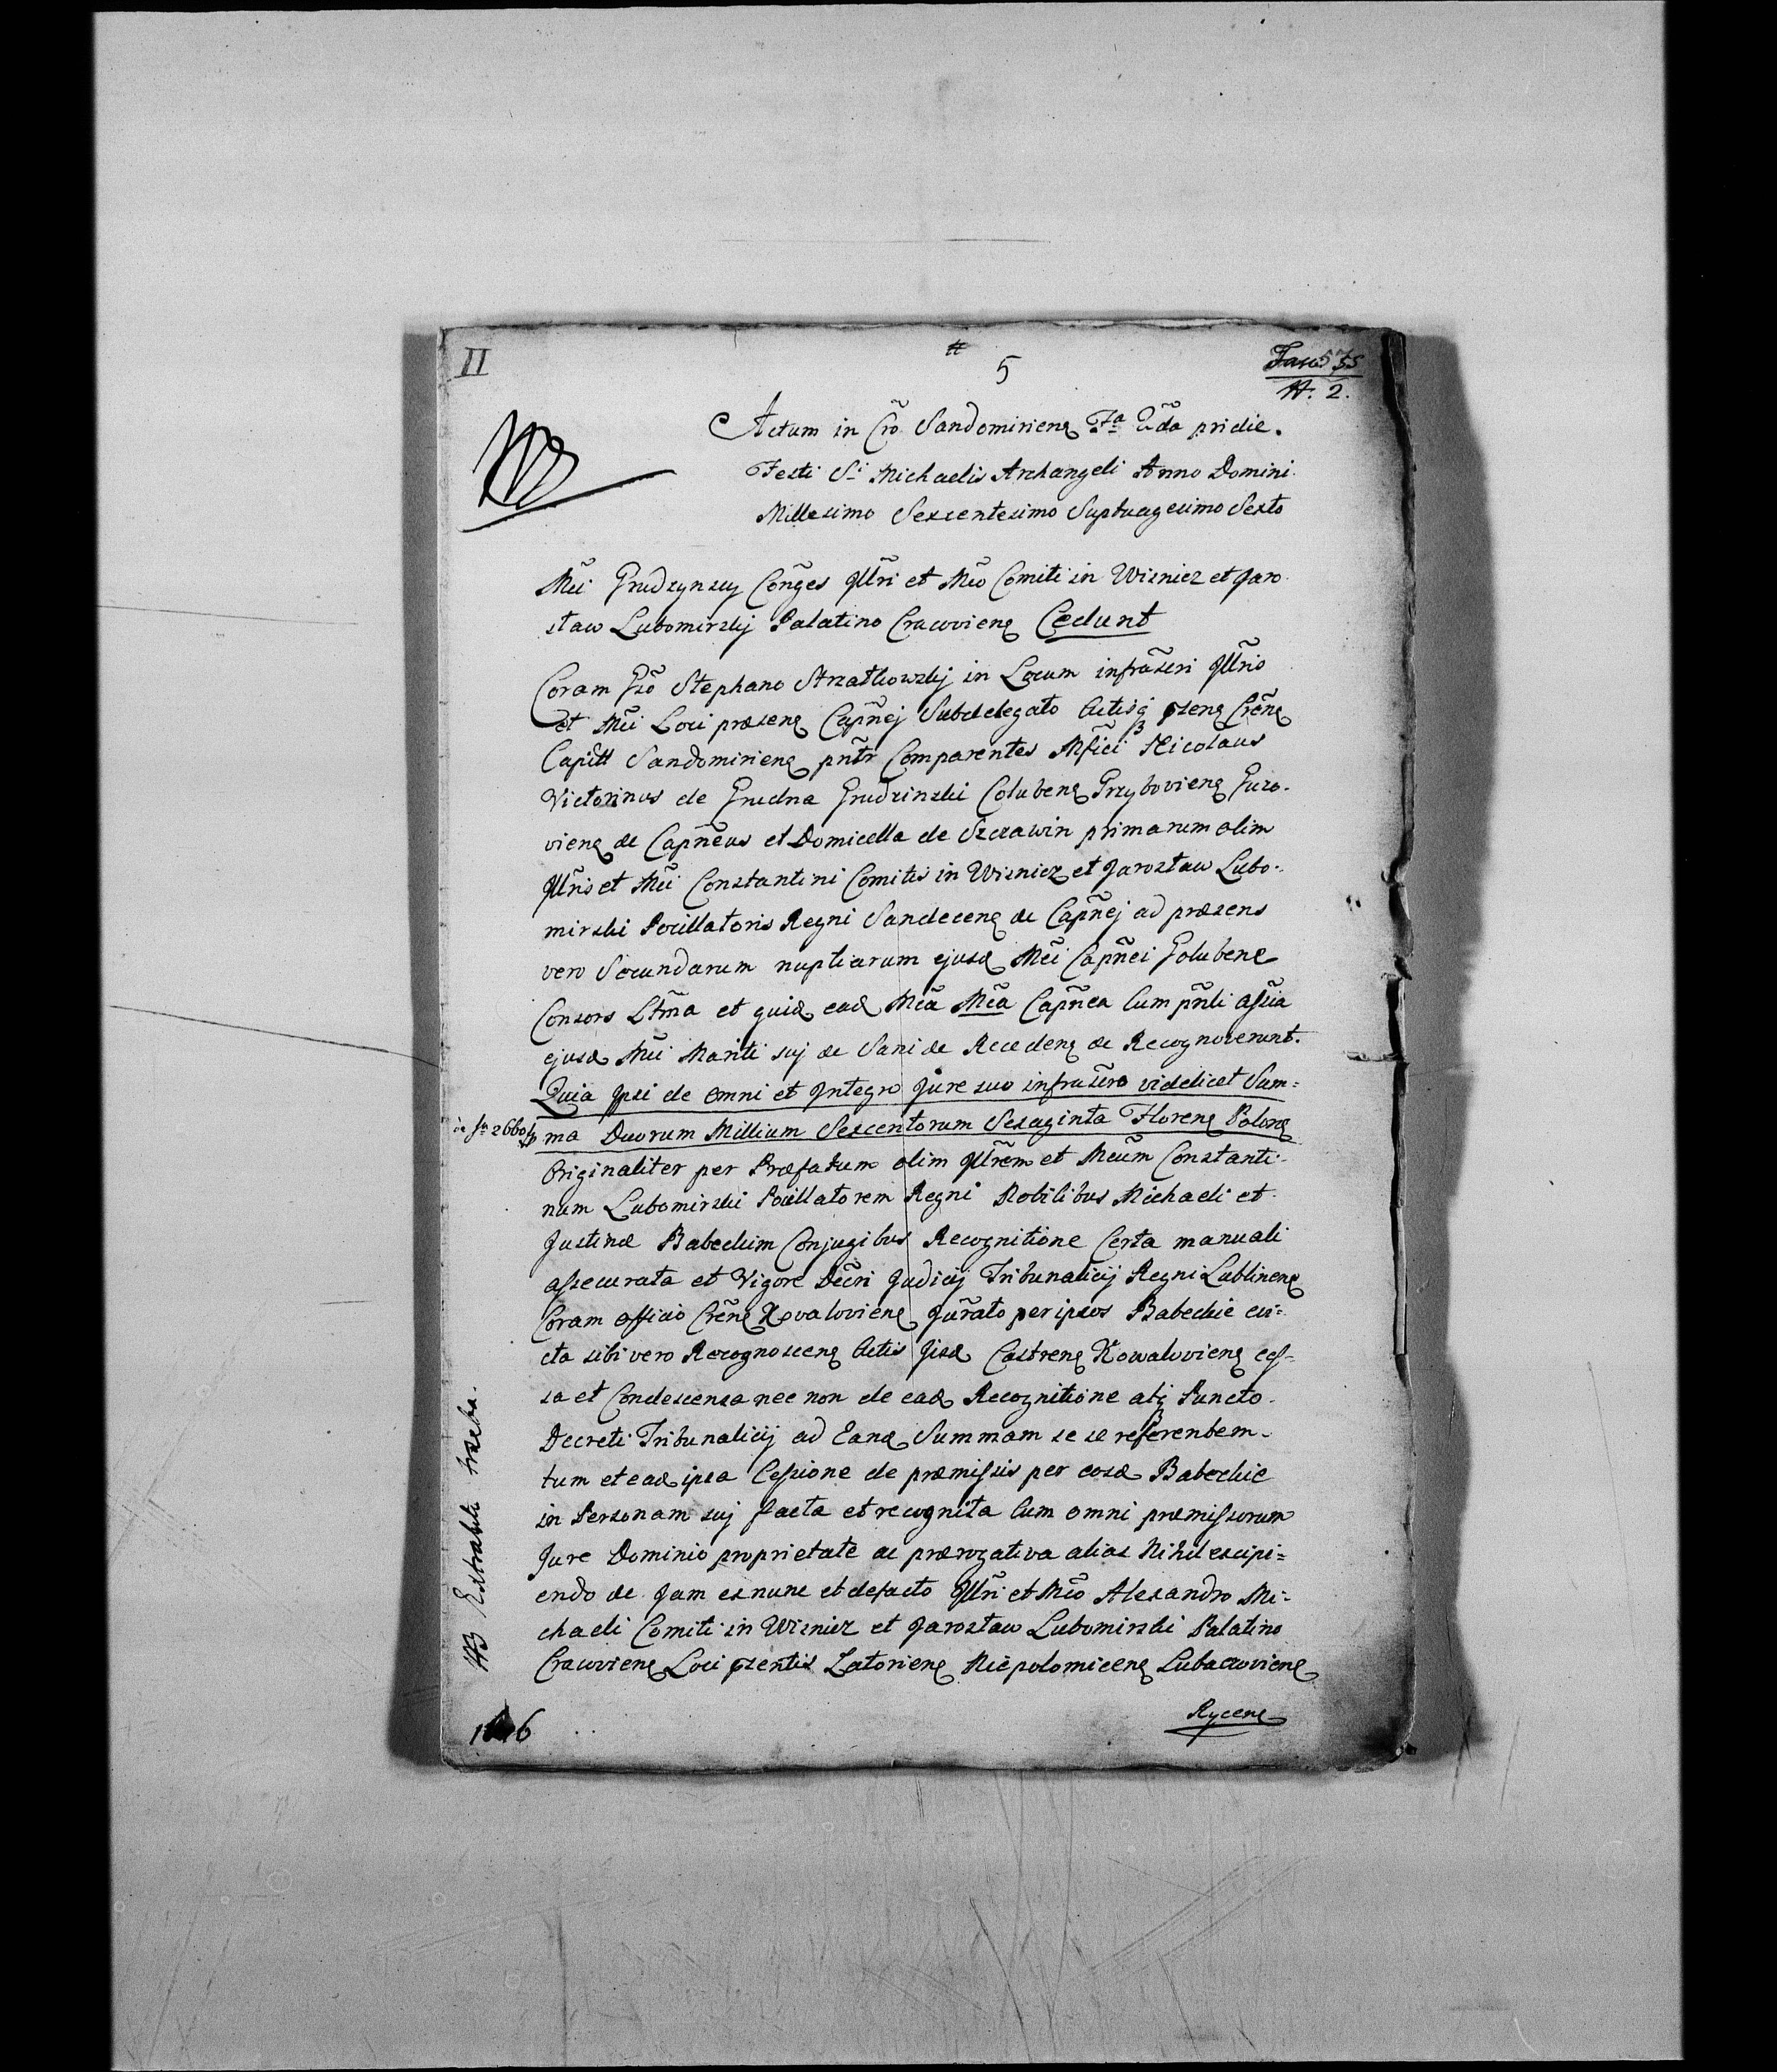 II
5
N. 2.
Actum in Crõ Sandomirieng Fa 2da pridie.
Festi Si Michaelis Archangeli Anno Domini
Millesimo Sexcentesimo Suptuagesimo Sexto
Mci Grudzynscy Conges Illri et Mco Comiti in Wisnicz et Jaro
slaw Lubomirskij Palatino Cracovieng Cedunt
Coram Gso Stephano Strzatkowskij in Locum infrascri Illris
et Mci Loci præseng Capnej Subdelegato Actisq pseng Crẽng
Capitt Sandomirieng pñtr Comparentes Mfici Nicolaus
Victorinus de Grudna Grudzinski Colubeng Grzybovieng Guzo.
vieng &c Capneus et Domicella de Szczawin primarum olim
Illris et Mci Constantini Comitis in Wisnicz et Jaroslaw Lubo.
mirski Pocillatoris Regni Sandeceng &c Capñej ad præsens
vero Secundarum nuptiarum ejusd Mci Capñei Golubeng
Consors Ltma et quid ead Mca Mca Capñea Cum pñli assia
ejusd Mci Mariti suj de Sani de Recedeng &c Recognoverunt.
Quia Ipsi de omni et Integro Jure suo infrascro videlicet Sum=
ma Duorum Millium Sexcentorum Sexaginta Floreng Polong
Originaliter per Præfatum olim Illrem et Mcum Constanti-
num Lubomirski Pocillatorem Regni Nobilibus Michaeli et
Justinæ Babeckim Conjugibus Recognitione Certa manuali
assecurata et Vigore Decri Judicij Tribunalicij Regni Lublineng
Coram officio Crẽng Xovalovieng Jurato per ipsos Babeckie evi=
cta sibi vero Recognosceng Actis Jisd Castreng Kowalovieng ces=
sa et Condescensa nec non de ead Recognitione atq Puncto
Decreti Tribunalicij ad Eand Summam se se referentem
tum et ead ipsa Cessione de præmissis per eosd Babeckie
in Personam suj facta et recognita Cum omni præmissorum
Jure Dominio proprietate ac prærogativa alias Nihil excipi=
endo de Jam ex nunc et defacto Illri et Mco Alexandro Mi-
chaeli Comiti in Wisnicz et Jaroslaw Lubomirski Palatino
Cracovieng Loci psentis Zatorieng Niepolomiceng Lubaczovieng
Ryceng
NB Extrahere trzeba.